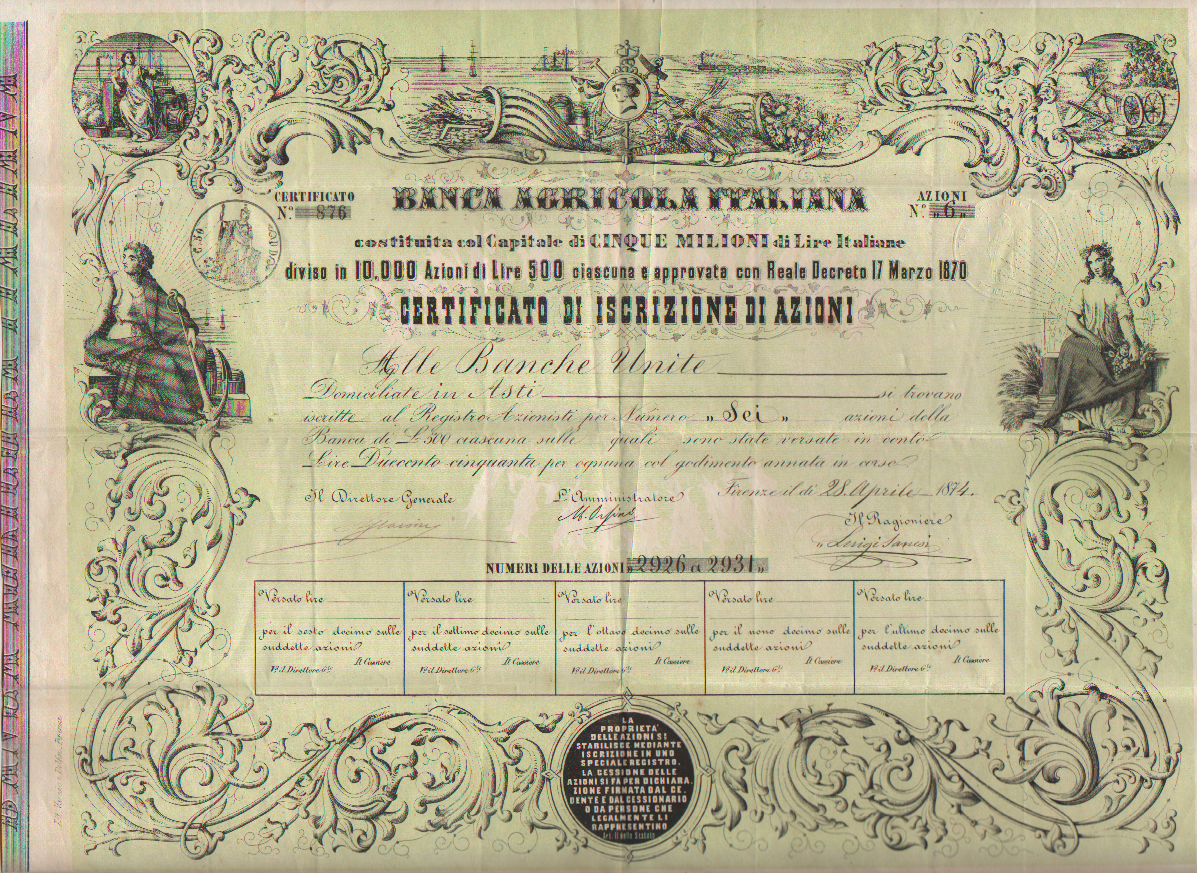 CERTIFICATO
N.º 876
BANCA AGRICOLA ITALIANA
AZIONI
N.º „6„
C. 50
costituita col Capitale di CINQUE MILIONI di Lire Italiane
diviso in 10.000 Azioni di Lire 500 ciascuna e approvata con Reale Decreto 17 Marzo 1870
CERTIFICATO DI ISCRIZIONE DI AZIONI
Alle Banche Unite
Domiciliate in Asti si trovano
iscritte al Registro Azionisti per Numero „ Sei „ azioni della
Banca di L. 500 ciascuna sulle quali sono state versate in conto
Lire Duecento cinquanta per ognuna col godimento annata in corso
Firenze il dì 28. Aprile 1874.
Il Direttore Generale
L'Amministratore
Il Ragioniere
Luigi
NUMERI DELLE AZIONI „2926 a 2931„
Versato lire
per il sesto decimo sulle
suddette azioni
Il Cassiere
Vº il Direttore Gle
Versato lire
per il settimo decimo sulle
suddette azioni
Il Cassiere
Vº il Direttore Gle
Versato lire
per l'ottavo decimo sulle
suddette azioni
Il Cassiere
Vº il Direttore Gle
Versato lire
per il nono decimo sulle
suddette azioni
Il Cassiere
Vº il Direttore Gle
Versato lire
per l'ultimo decimo sulle
suddette azioni
Il Cassiere
Vº il Direttore Gle
LA
PROPRIETA'
DELLE AZIONI SI
STABILISCE MEDIANTE
ISCRIZIONE IN UNO
SPECIALE REGISTRO.
LA CESSIONE DELLE
AZIONI SI FA PER DICHIARA.
ZIONE FIRMATA DAL CE.
DENTE E DAL CESSIONARIO
O DA PERSONE CHE
LEGALMENTE LI
RAPPRESENTINO